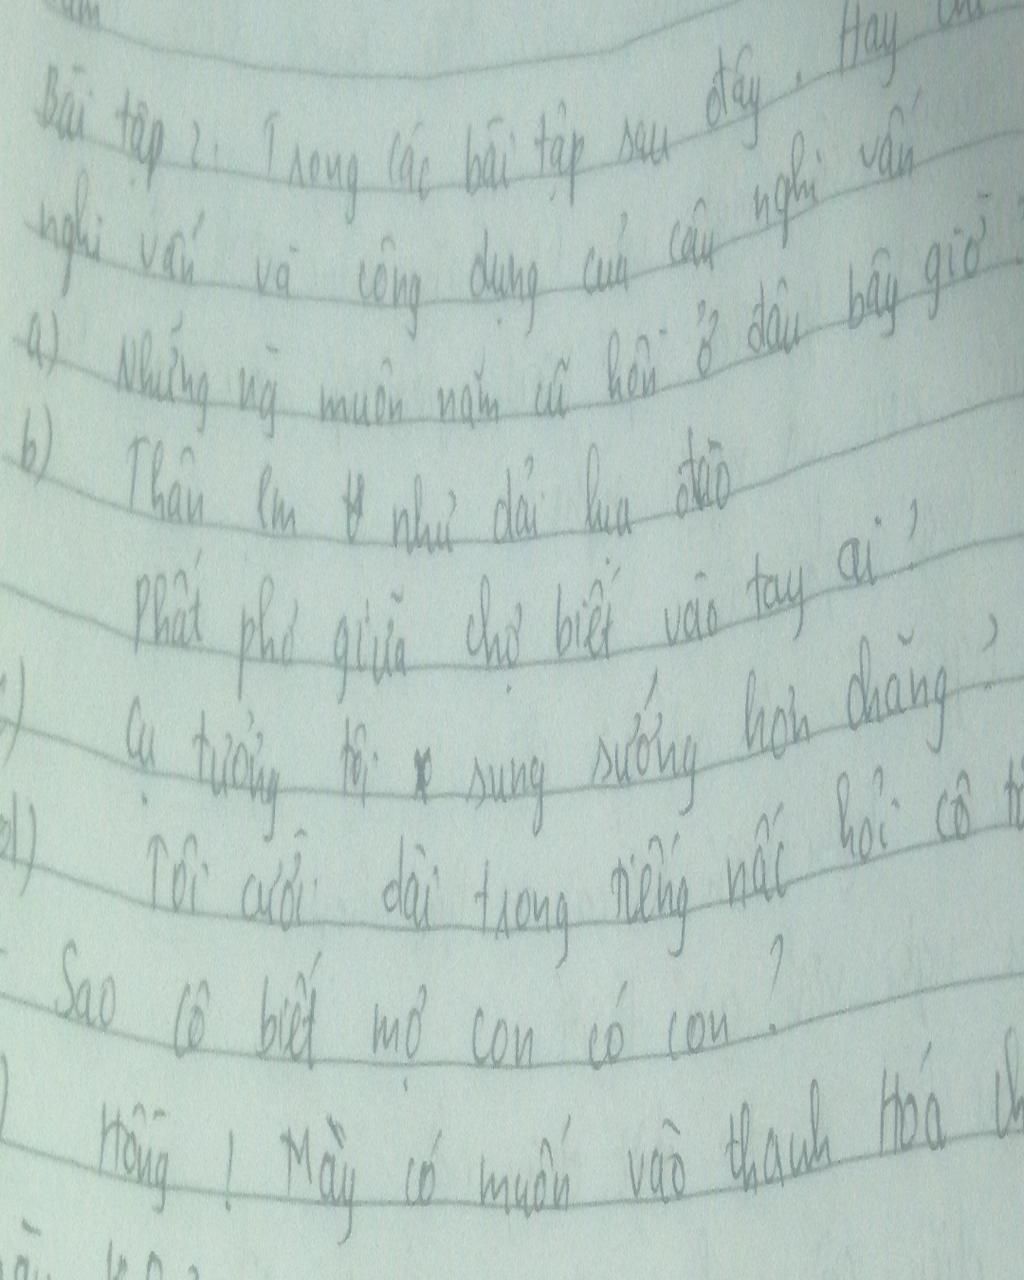 Bài tập 2. Trong các bài tập sau đây. Hãy
nghi vấn và công dụng của câu nghi vấn
a) Những ng muôn năm cũ hồn ở đâu bây giờ
b) Thân em như dải lụa đào
Phất phơ giữa chợ biết vào tay ai?
Cụ tưởng tôi sung sướng hơn chăng?
d) Tôi cười dài trong tiếng nấc hỏi cô
- Sao cô biết mợ con có con?
Hồng! Mày có muốn vào Thanh Hoá